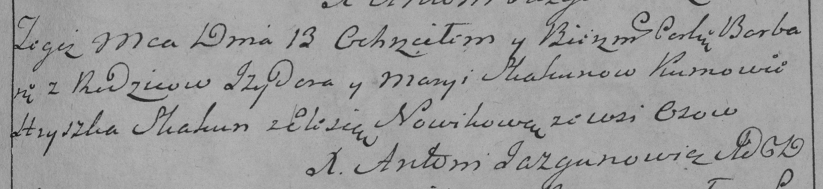 Tegoż Mca Dnia 13 Ochrzciłem y Bierzm Corkę Barba
rę z Rodzicow Izydora y Maryi Skakunow Kumowie
Hryszka Skakun z Elesią Nowikową ze wsi Osow
X. Antoni Jazgunowicz